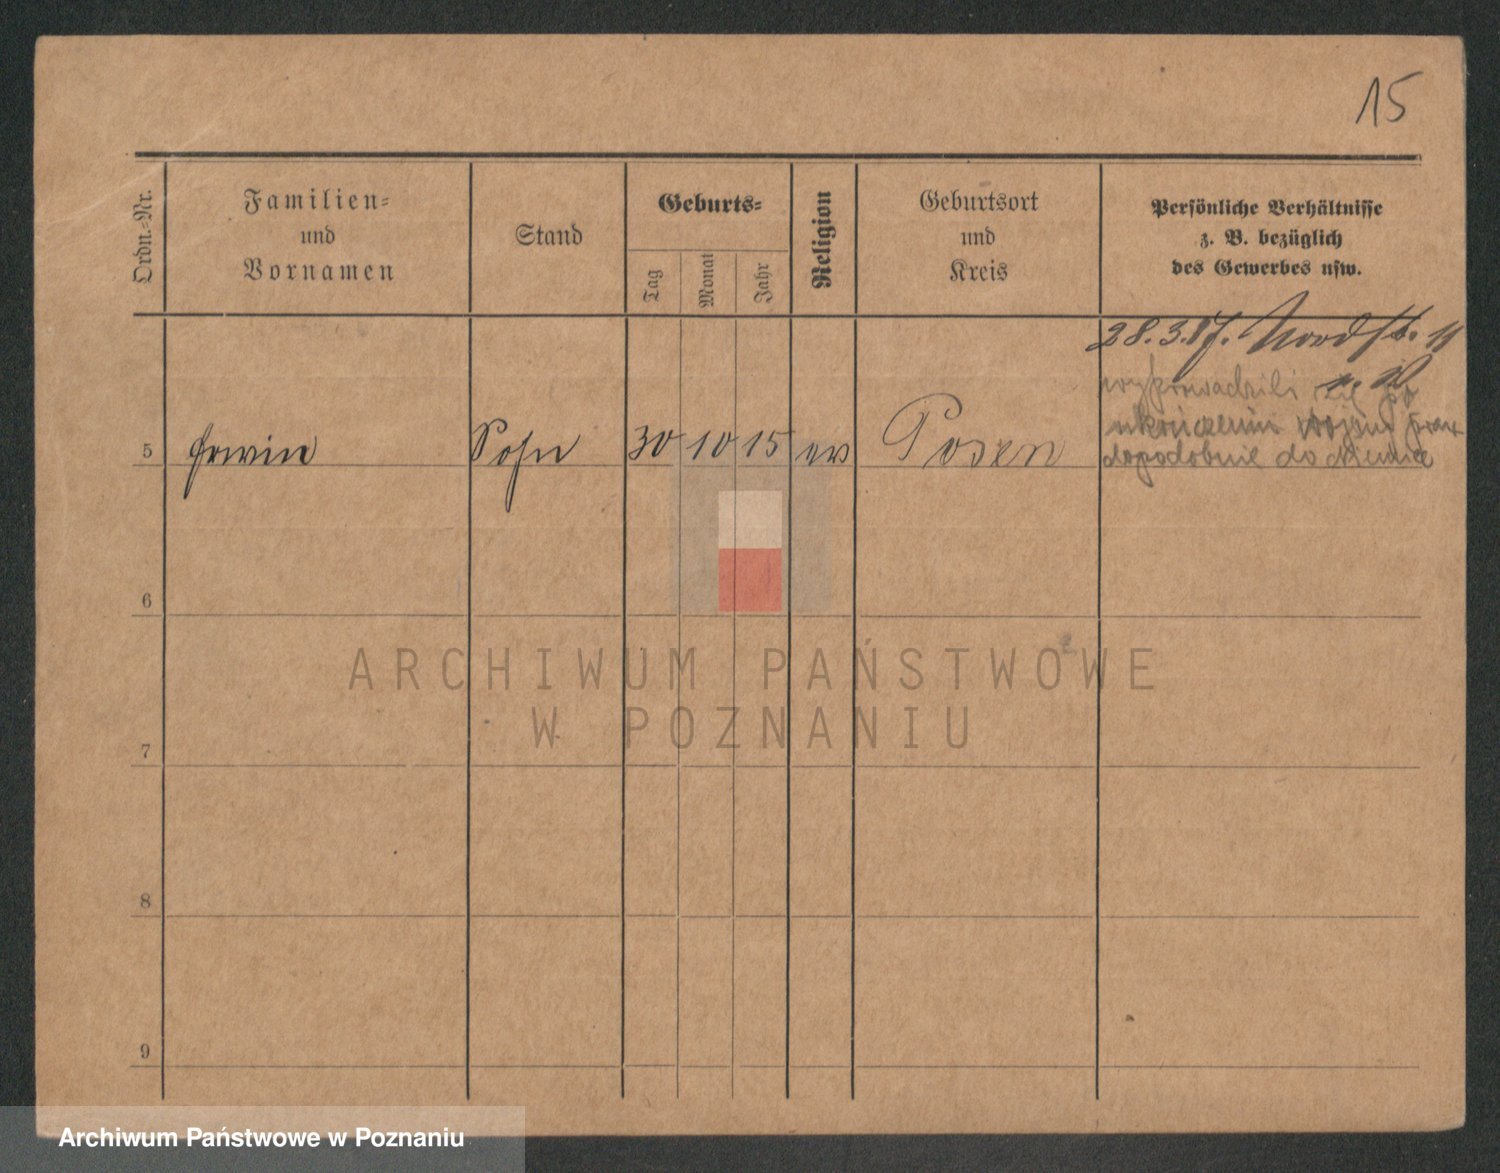 15
Ordn.-Nr.
Familien-
und
Vornamen
Stand
Geburts-
Tag
Monat
Jahr
Religion
Geburtsort
und
Kreis
Persönliche Verhältnisse
z. B. bezüglich
des Gewerbes usw.
28.3.17. Nordstr. 11
wyprowadzili się po
ukończeniu wojny praw
dopodobnie do Niemiec
5 Erwin Sohn 30 10 15 ev Posen
6
ARCHIWUM PAŃSTWOWE
W POZNANIU
7
8
9
Archiwum Państwowe w Poznaniu